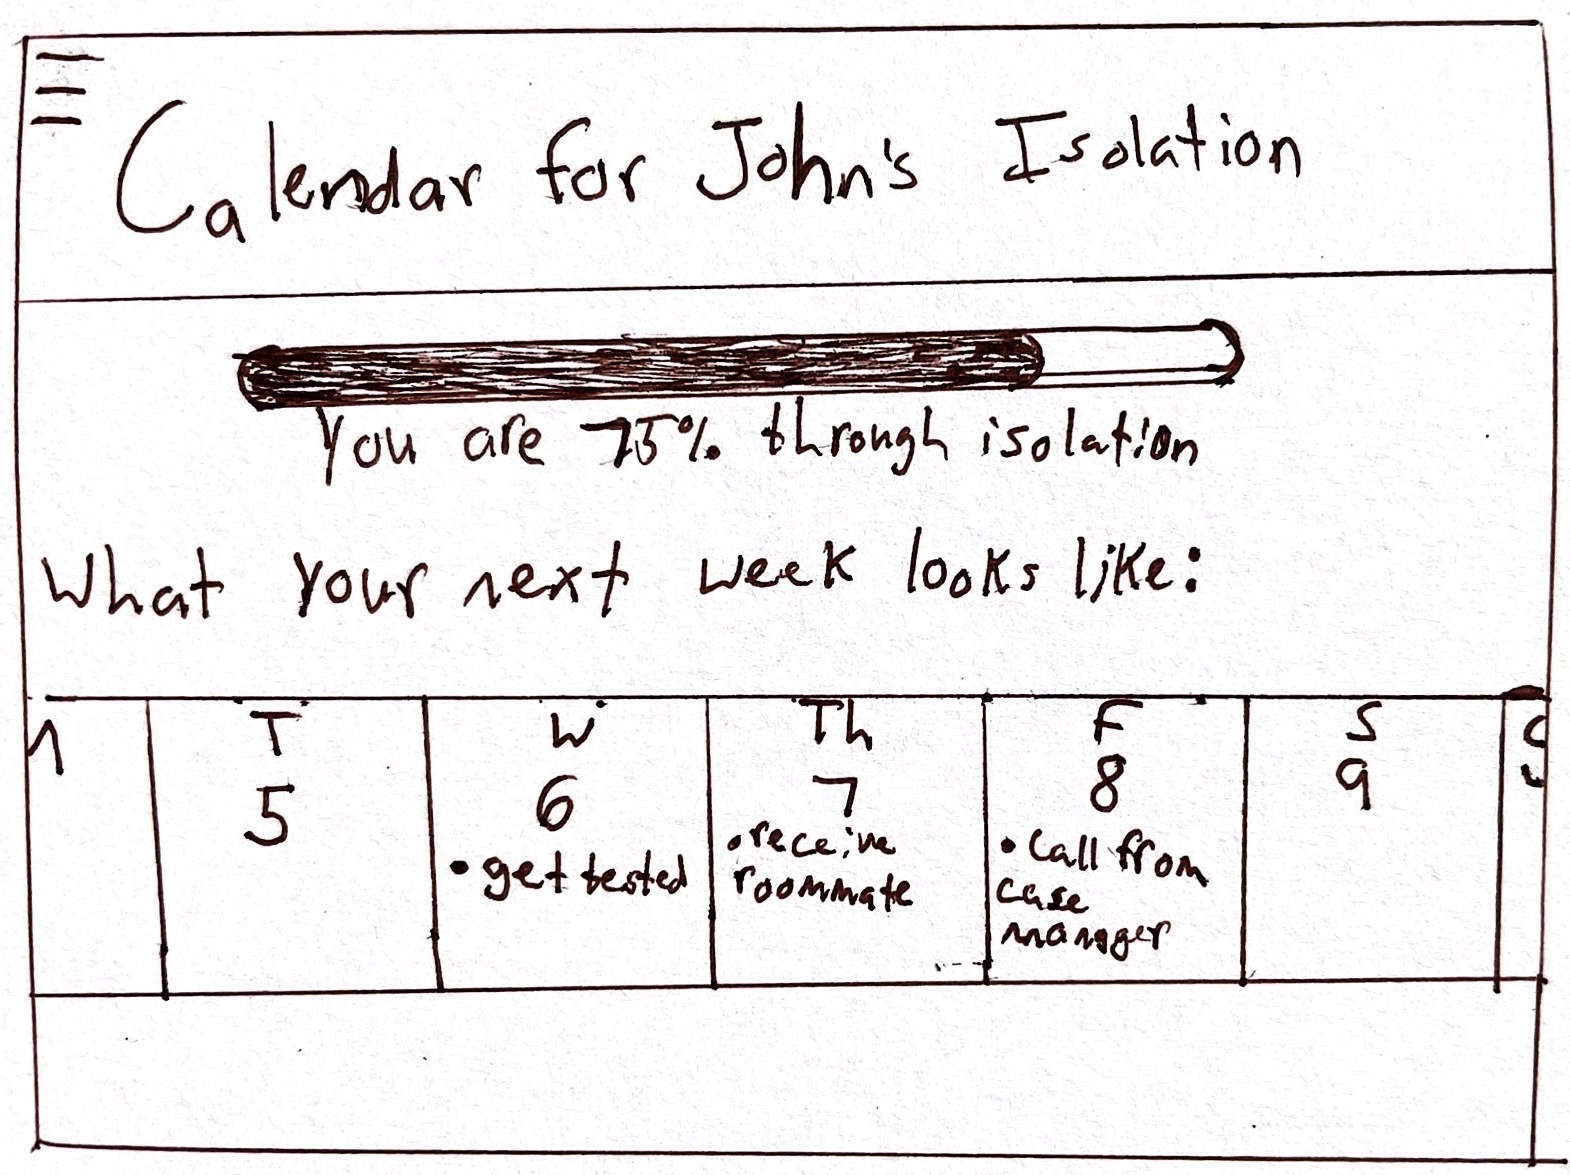 Calendar for John's Isolation
You are 75% through isolation
What your next week looks like:
T W Th F S
5 6 7 8 9
• get tested
• receive
roommate
• Call from
case
manager